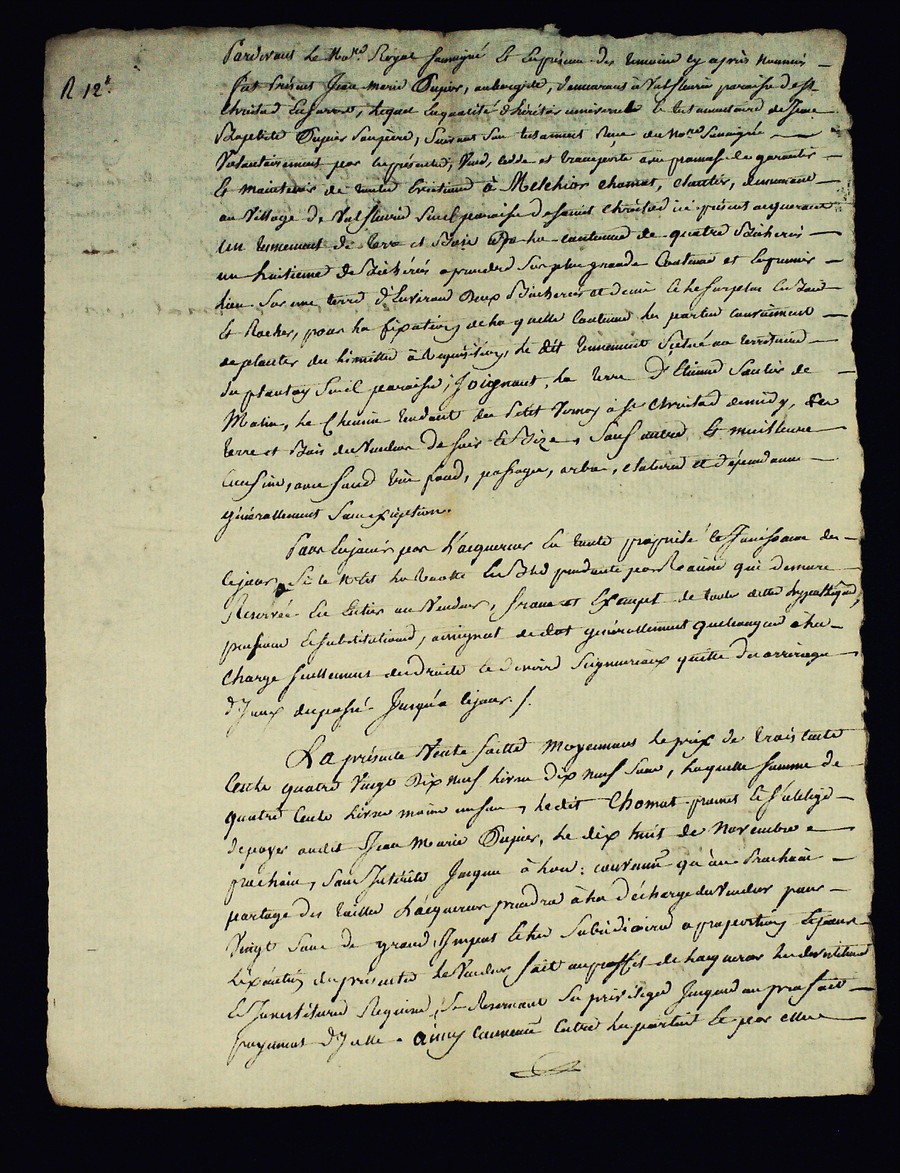 R 12s
Pardevant Le No.re Royal soussigné Et En présence des temoins cy après Nommés
fut Présent Jean marie Dupier, aubergiste, demeurant à Valfleurie paroisse de st
Christod En Jarret, Lequel En qualité d'héritier universelle et testamentaire de Jean
Baptiste Dupier son père, suivant son testament Reçu de No.re soussigné
Volontairement par Les présentes, Vend, Cedde et transporte avec promesse de garantir
Et maintenir de toutes Evictions à Melchior Chomat, demeurant
au Village de Valfleurie susd paroisse de saint Christod ici présent acquereur
Un tennement de terre et Bois de la contenue de quatre Bicherées
un huitieme de Bicherée a prendre sur plus grande Contenue et En premier
lieu sur une terre d'Environ Deux Bicherées et demie Et le surplus En Bois
Et Rocher, pour la fixation de la quelle Contenue Les parties conviennent
de planter des Limittes à Requisition, Le dit tennement situé au territoire
du plantay susd paroisse; Joignant, La terre d'Etienne de
Matin, Le Chemin tendant du Petit à st Christod de midy, Les
terre et Bois du Vendeur de soir Et Bize, sauf autres Et meilleurs
Confins, avec ses fond, passages, arbres, et dépendances
générallement sans exception.
Pour En jouir par L'acquereur En toute propriété Et Jouissance des
ce jour, Si ce n'est La Recolte En Bled pendante par Racine qui demeure
Reservée En Entier au Vendeur, franc et Exempt de toute dettes hyppotèques,
pensions Et substitutions, arrérages de dot générallement quelconque à la
Charge seullement des droits Et devoirs seigneuriaux quitte des arrérages
d'Iceux du passé Jusqu'à ce jour ./.
La présente Vente faitte Moyennant Le prix de trois cents
Cents quatre Vingt Dix neuf Livres dix neuf sous, Laquelle somme de
quatre Cents Livres moins un sou, Le dit Chomat promet Et s'oblige
de payer audit Jean Marie Dupier, Le dix huit de Novembre
prochain, sans Intérêts Jusque à Lors: convenu qu'au Prochain
partage des tailles L'acquereur prendra à La décharge du Vendeur pour
Vingt sous de grand Impot Et les subsidiaires a proportion Et pour
L'exécution des présentes Le Vendeur fait au proffit de L'acquereur Les devestitures
Et Investitures Requises, se Reservant ses privileges Jusqu'au parfait
payement d'Icelle. ainsy convenu Entre Les parties Et par elles